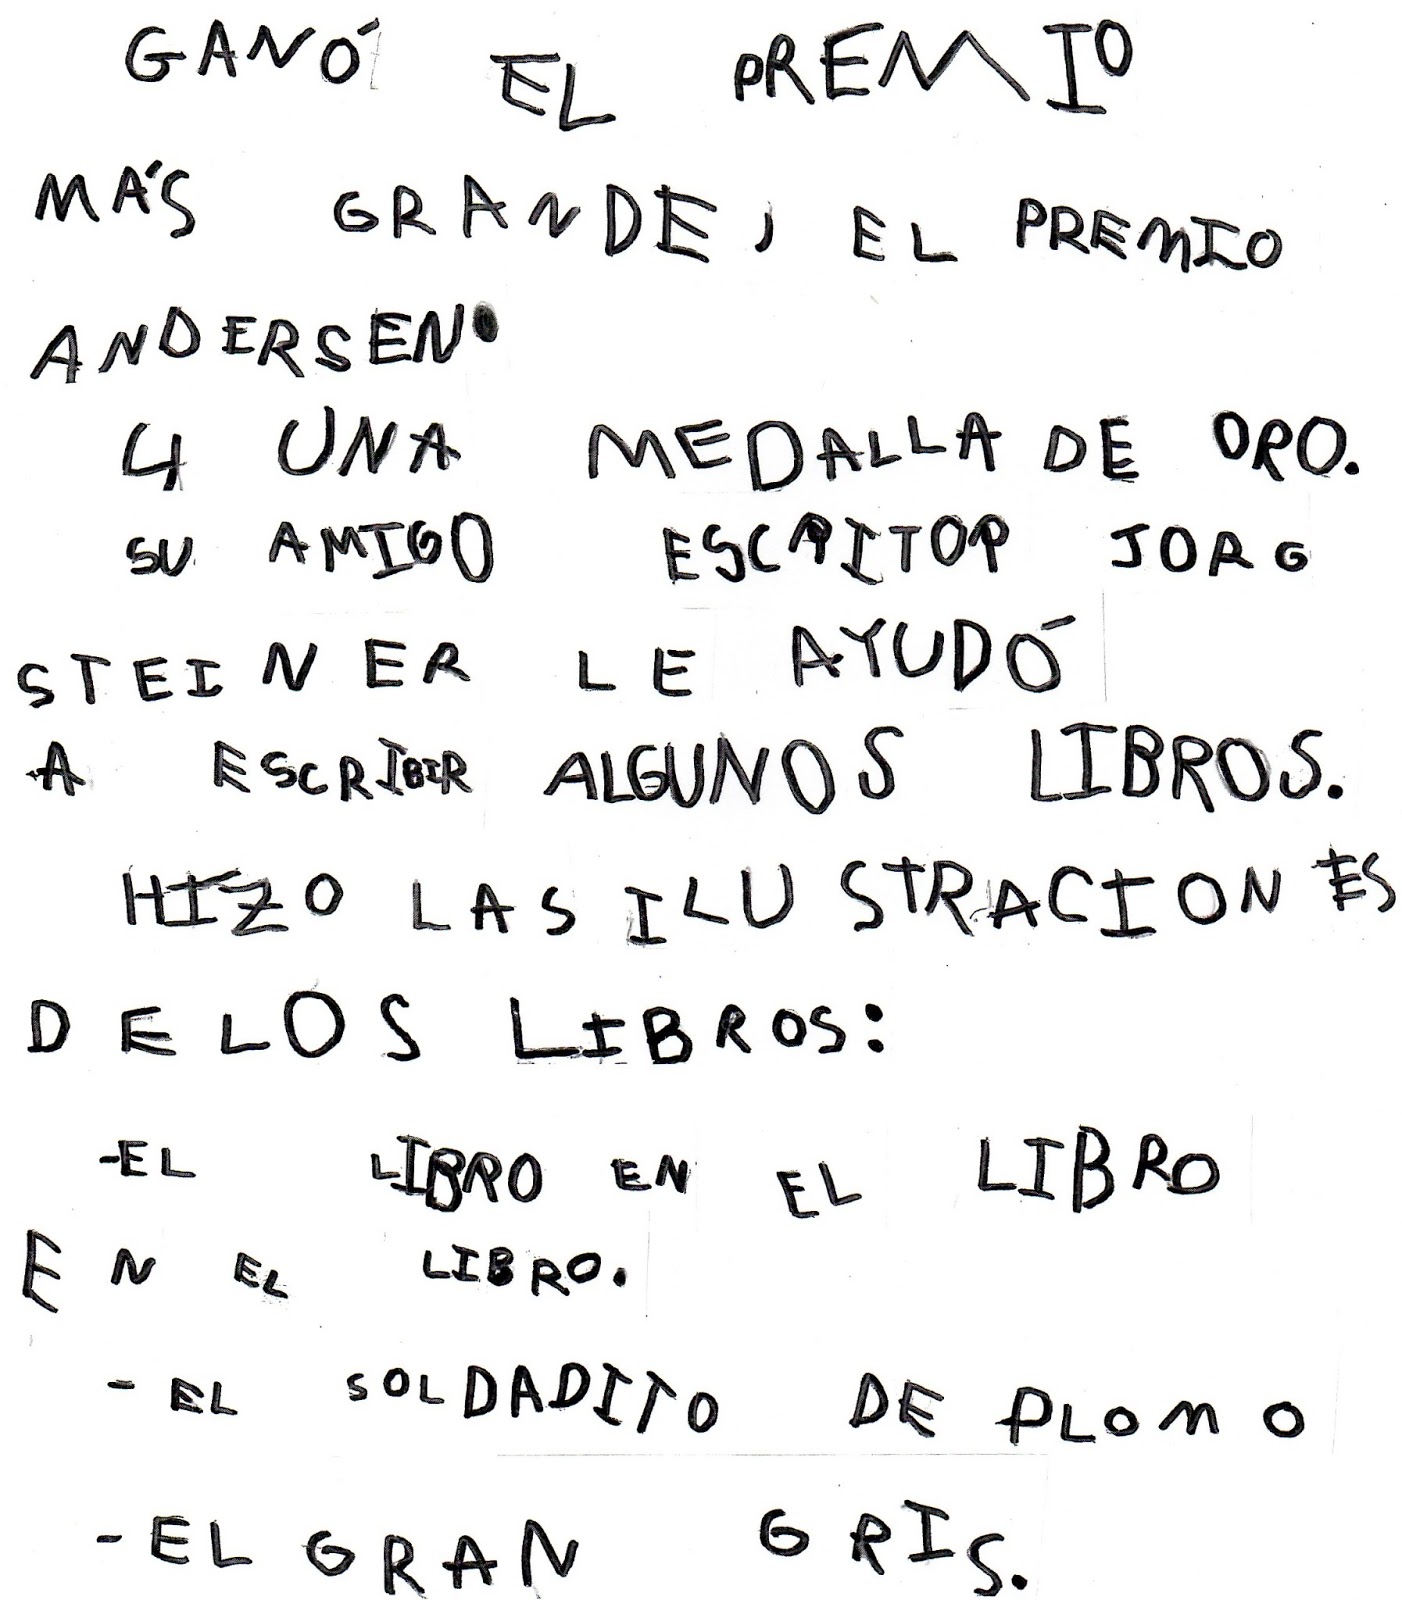 GANÓ EL PREMIO
MÁS GRANDE, EL PREMIO
ANDERSEN.
Y UNA MEDALLA DE ORO.
SU AMIGO ESCRITOR JORG
STEINER LE AYUDÓ
A ESCRIBIR ALGUNOS LIBROS.
HIZO LAS ILUSTRACIONES
DE LOS LIBROS:
-EL LIBRO EN EL LIBRO
EN EL LIBRO.
- EL SOLDADITO DE PLOMO
- EL GRAN GRIS.